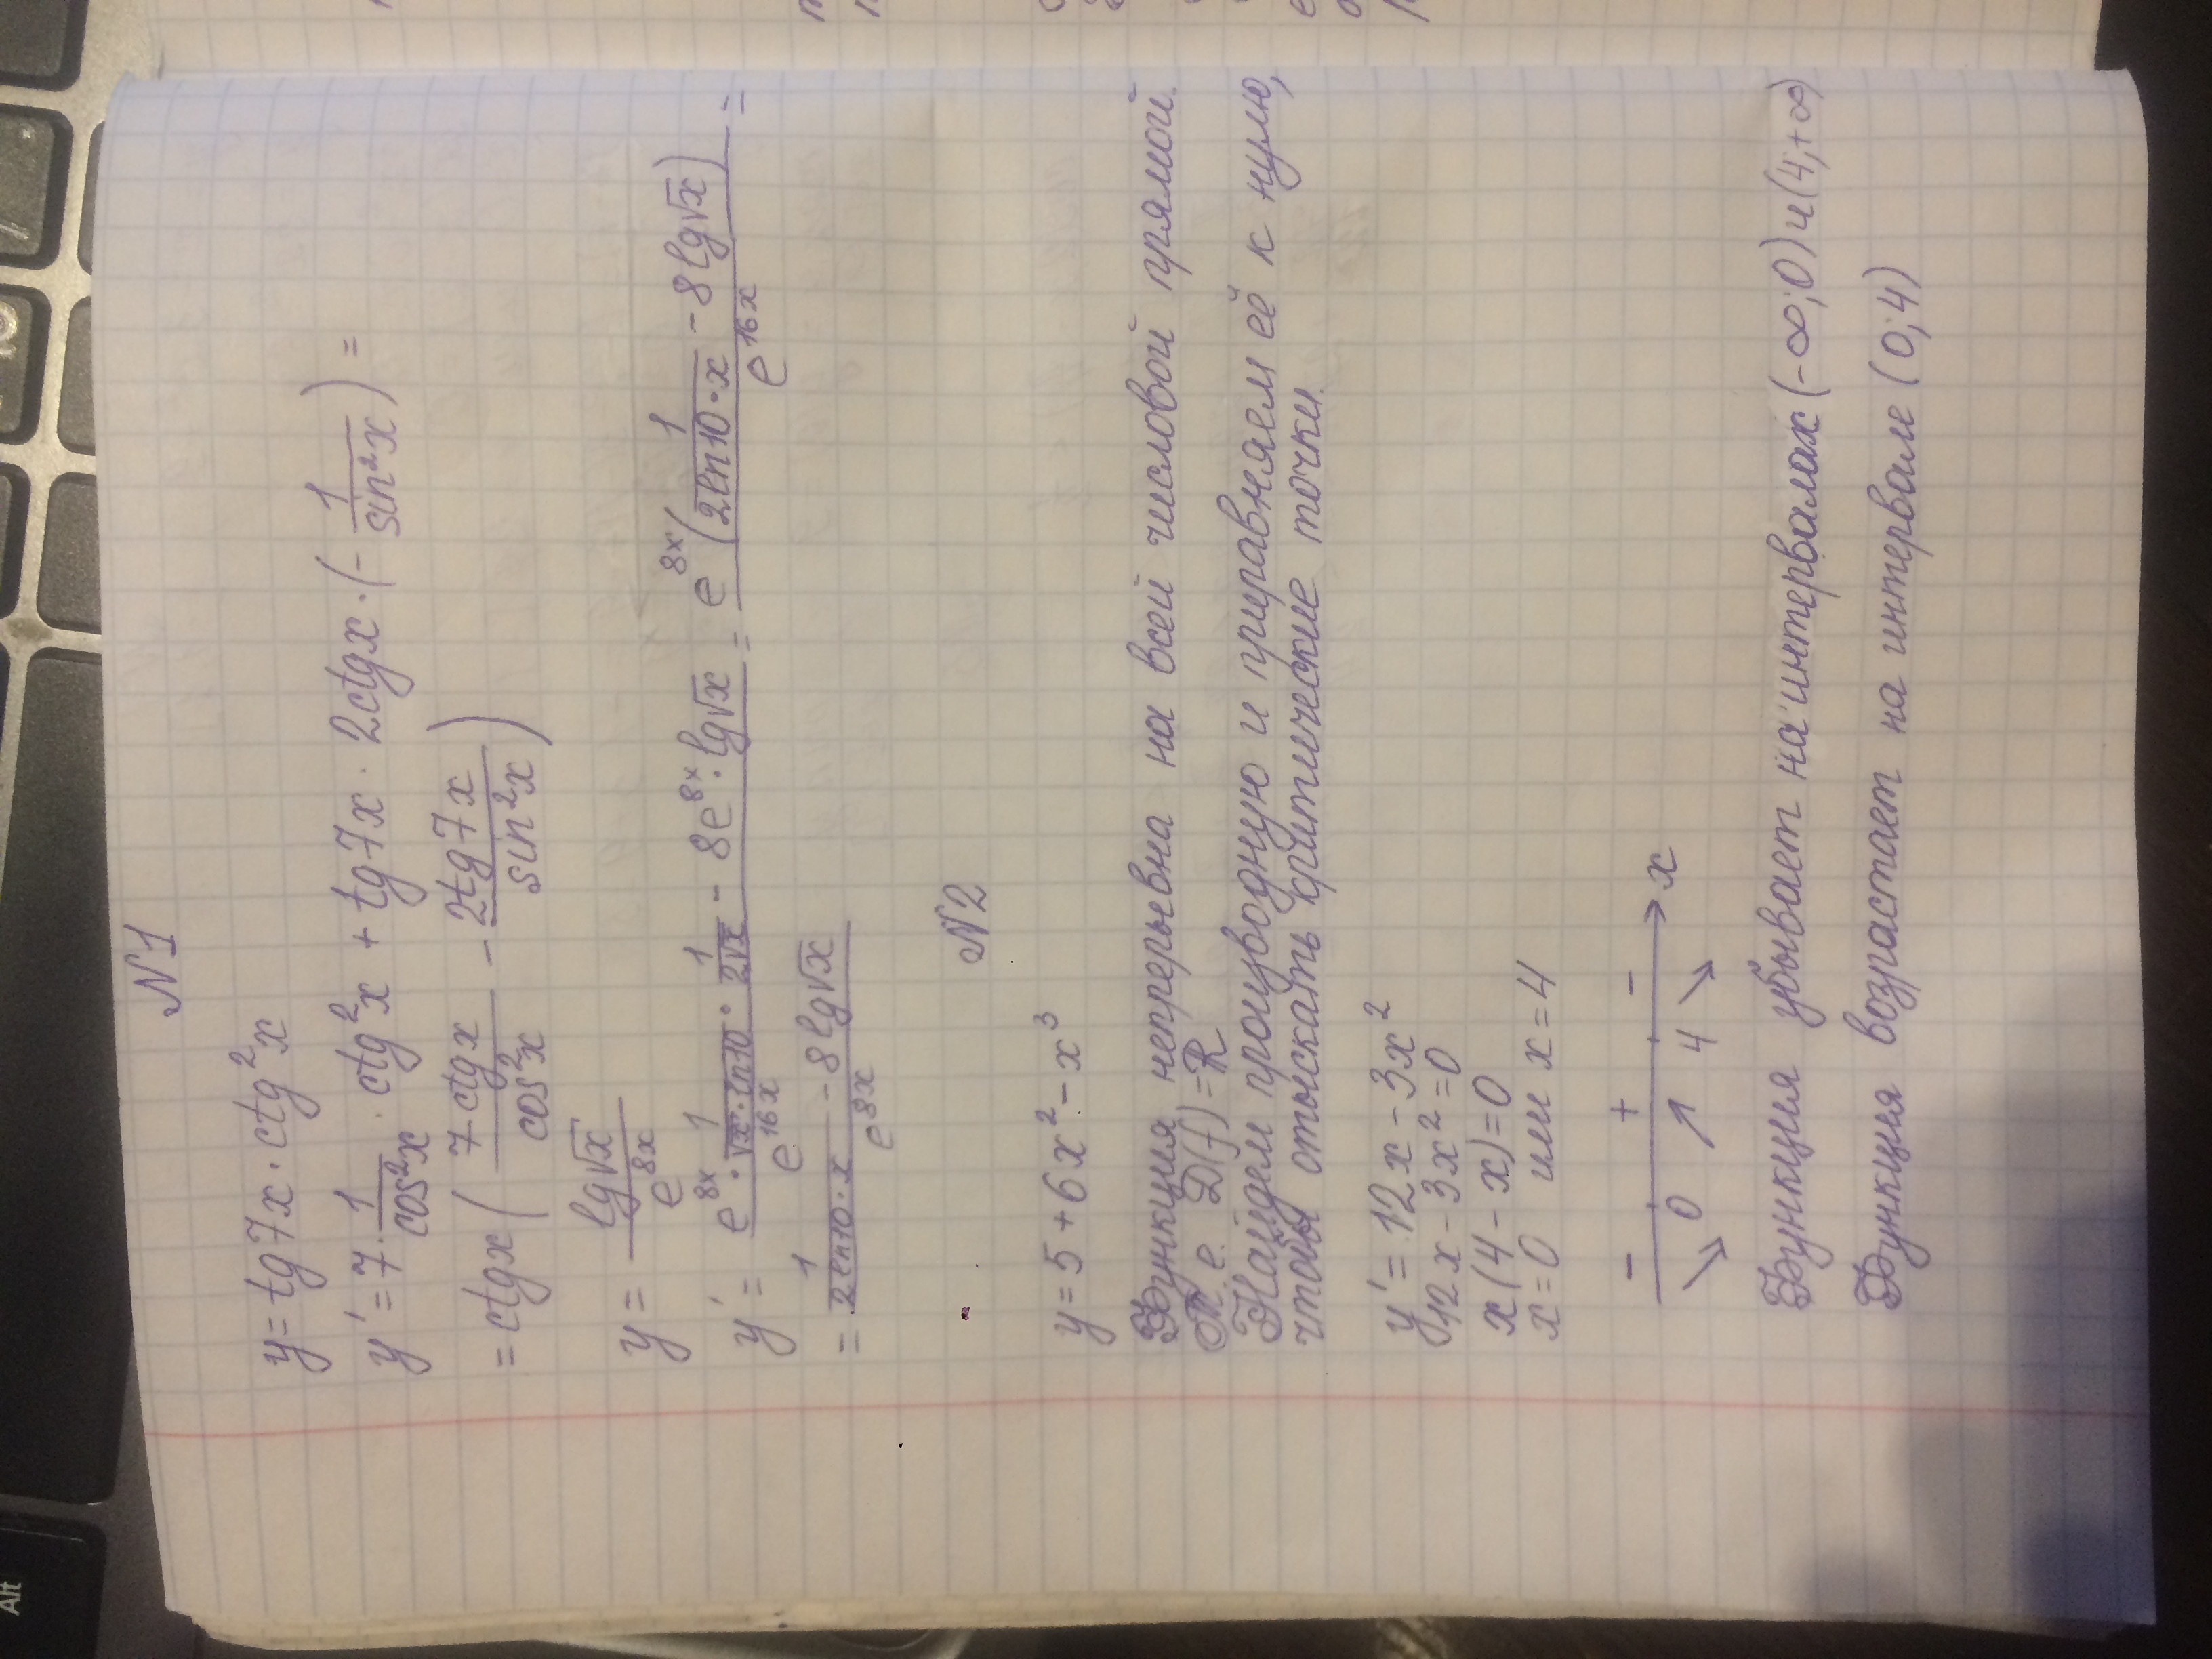 №1
y = tg7x · ctg²x
y' = 7 · 1/cos²x · ctg²x + tg7x · 2ctgx · (- 1/sin²x) =
= ctgx (7·ctgx/cos²x - 2tg7x/sin²x)
y = lg√x / e^8x
y' = (e^8x · 1/(√x · ln10) · 1/(2√x) - 8e^8x · lg√x) / e^16x = e^8x (1/(2ln10·x) - 8lg√x) / e^16x =
= (1/(2ln10·x) - 8lg√x) / e^8x
№2
y = 5 + 6x² - x³
Функция непрерывна на всей числовой прямой.
Т.е. D(f) = R
Найдем производную и приравняем её к нулю,
чтобы отыскать критические точки.
y' = 12x - 3x²
12x - 3x² = 0
x(4 - x) = 0
x = 0 или x = 4
- + -
0 4 x
Функция убывает на интервалах (-∞; 0) и (4; +∞)
Функция возрастает на интервале (0; 4)
Alt